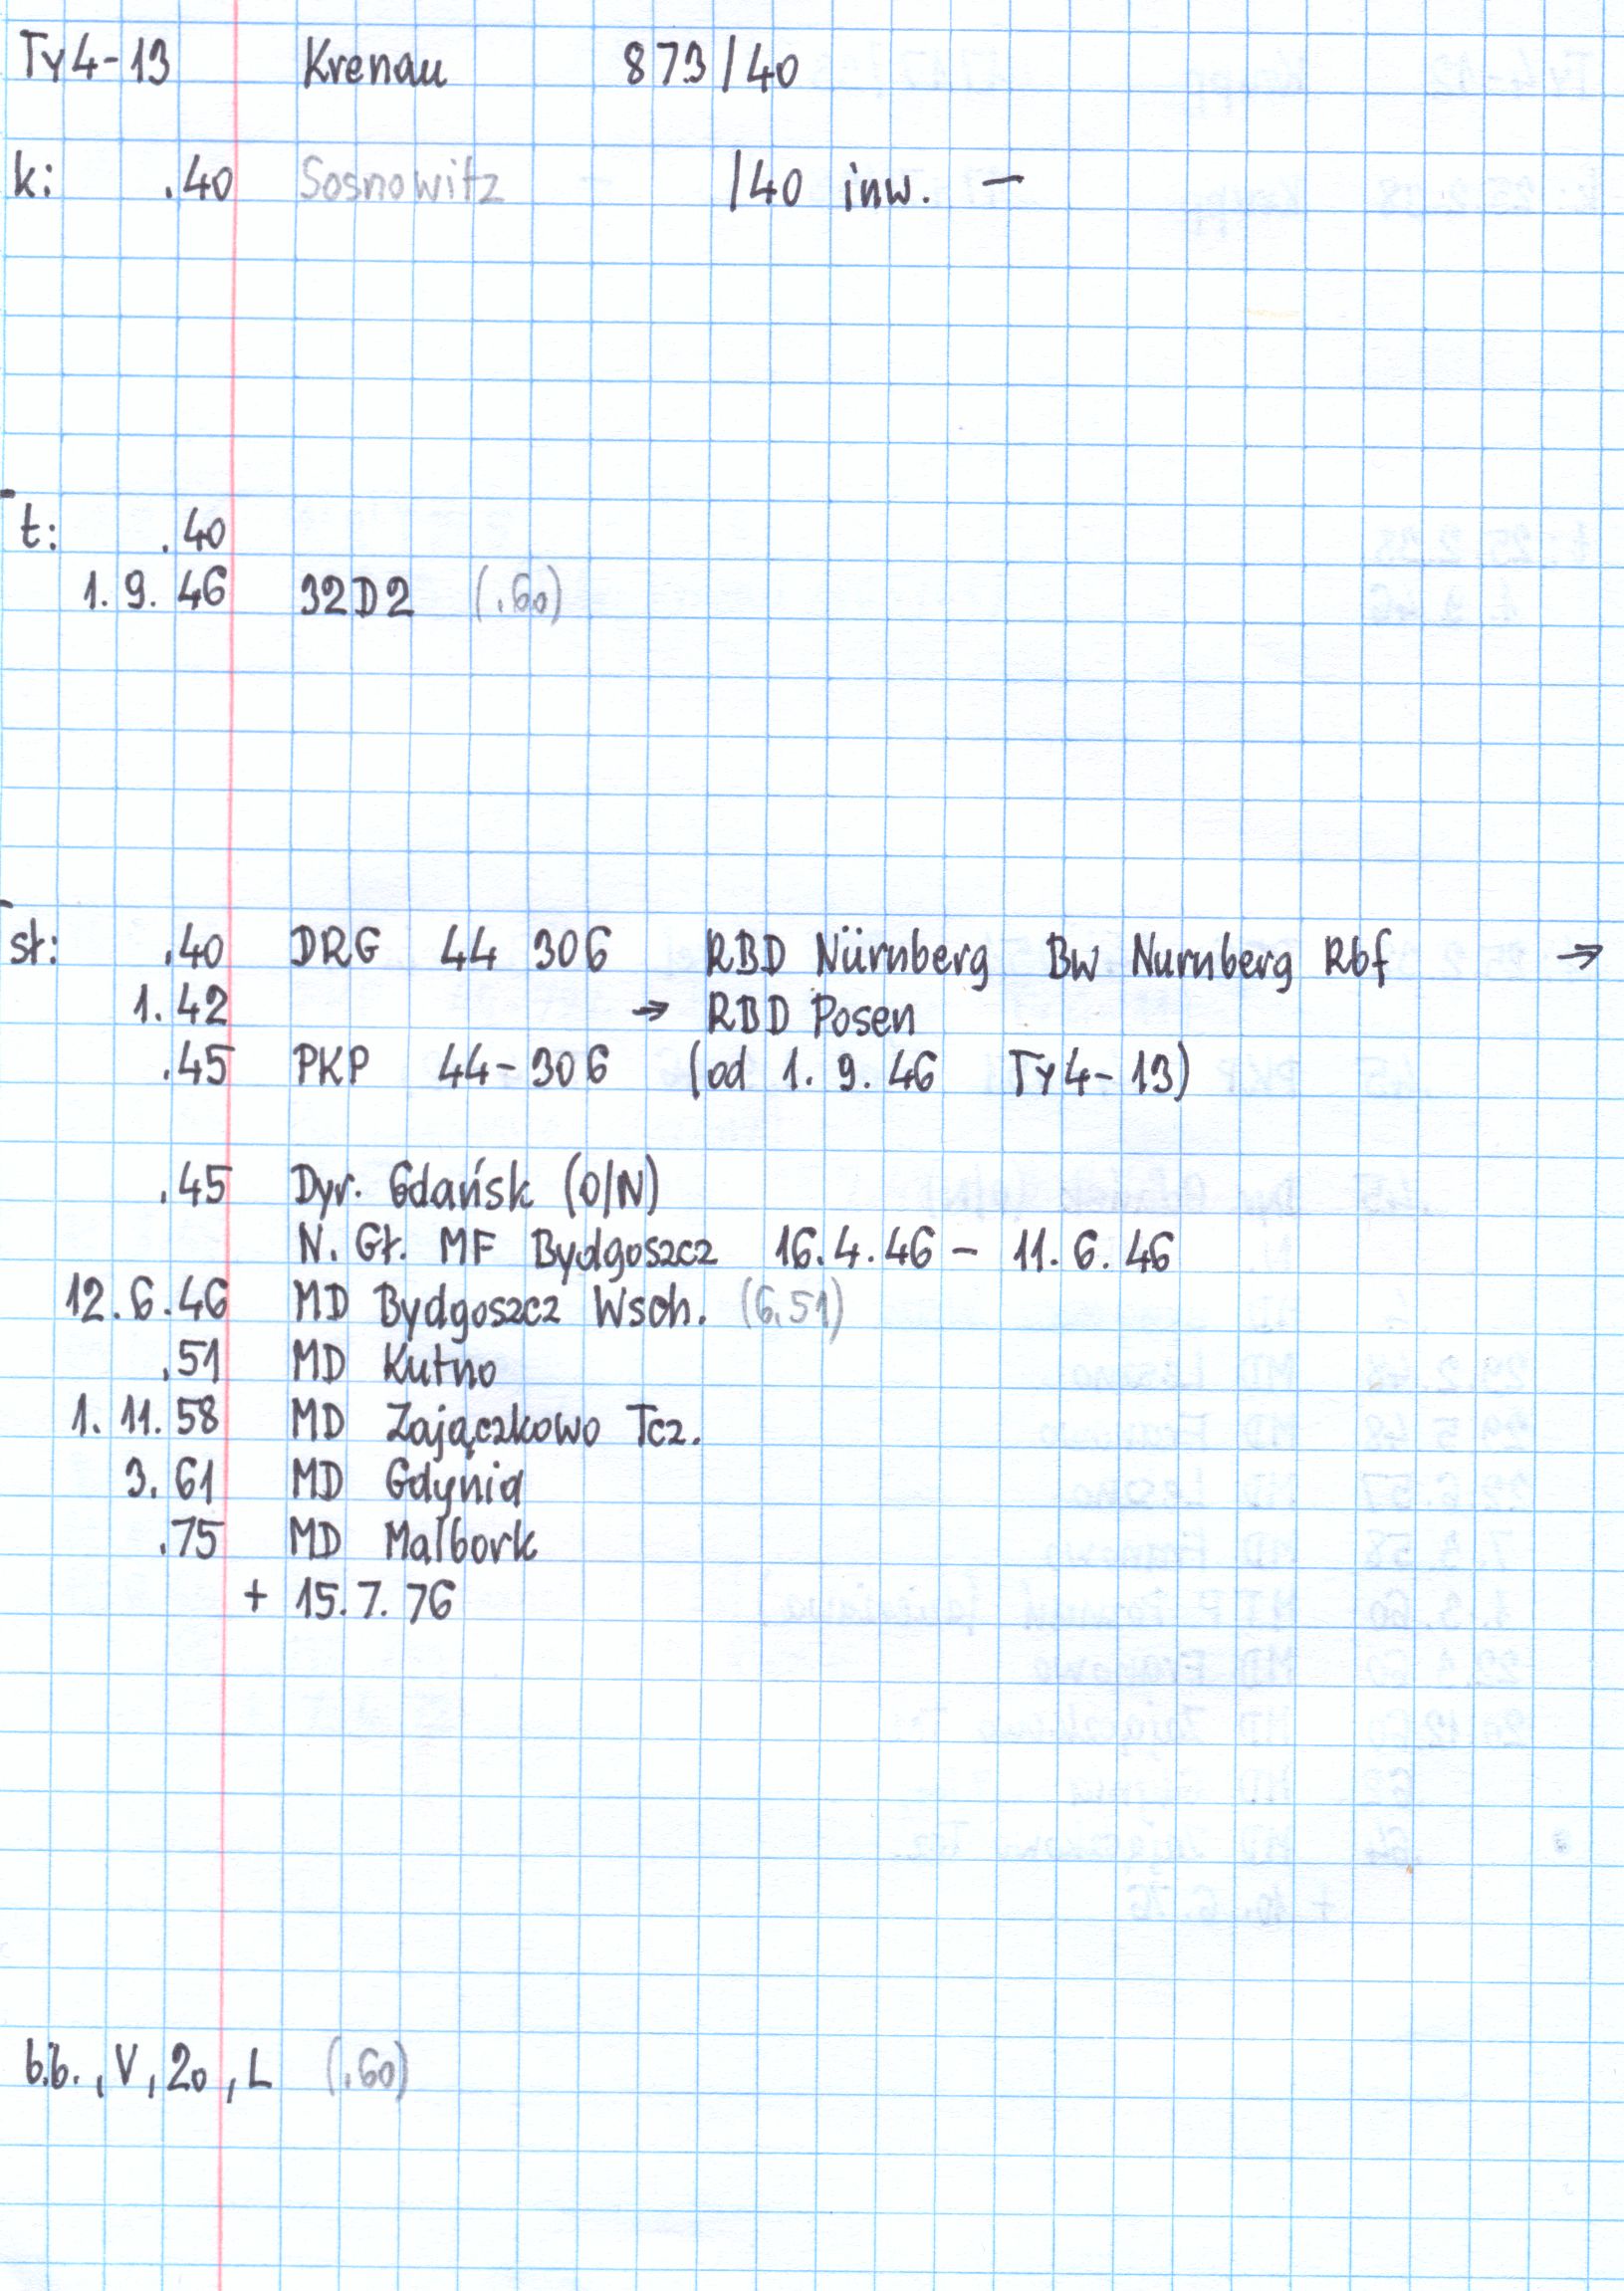 Ty4-13 Krenau 873/40
k: .40 Sosnowitz /40 inw. —
t: .40
1.9.46 32D2 (.60)
st: .40 DRG 44 306 RBD Nürnberg Bw Nurnberg Rbf →
1.42 → RBD Posen
.45 PKP 44-306 (od 1.9.46 Ty4-13)
.45 Dyr. Gdańsk (O/N)
N. Gł. MF Bydgoszcz 16.4.46 – 11.6.46
12.6.46 MD Bydgoszcz Wsch. (6.51)
.51 MD Kutno
1.11.58 MD Zajączkowo Tcz.
3.61 MD Gdynia
.75 MD Malbork
+ 15.7.76
b.b., V, 20, L (.60)